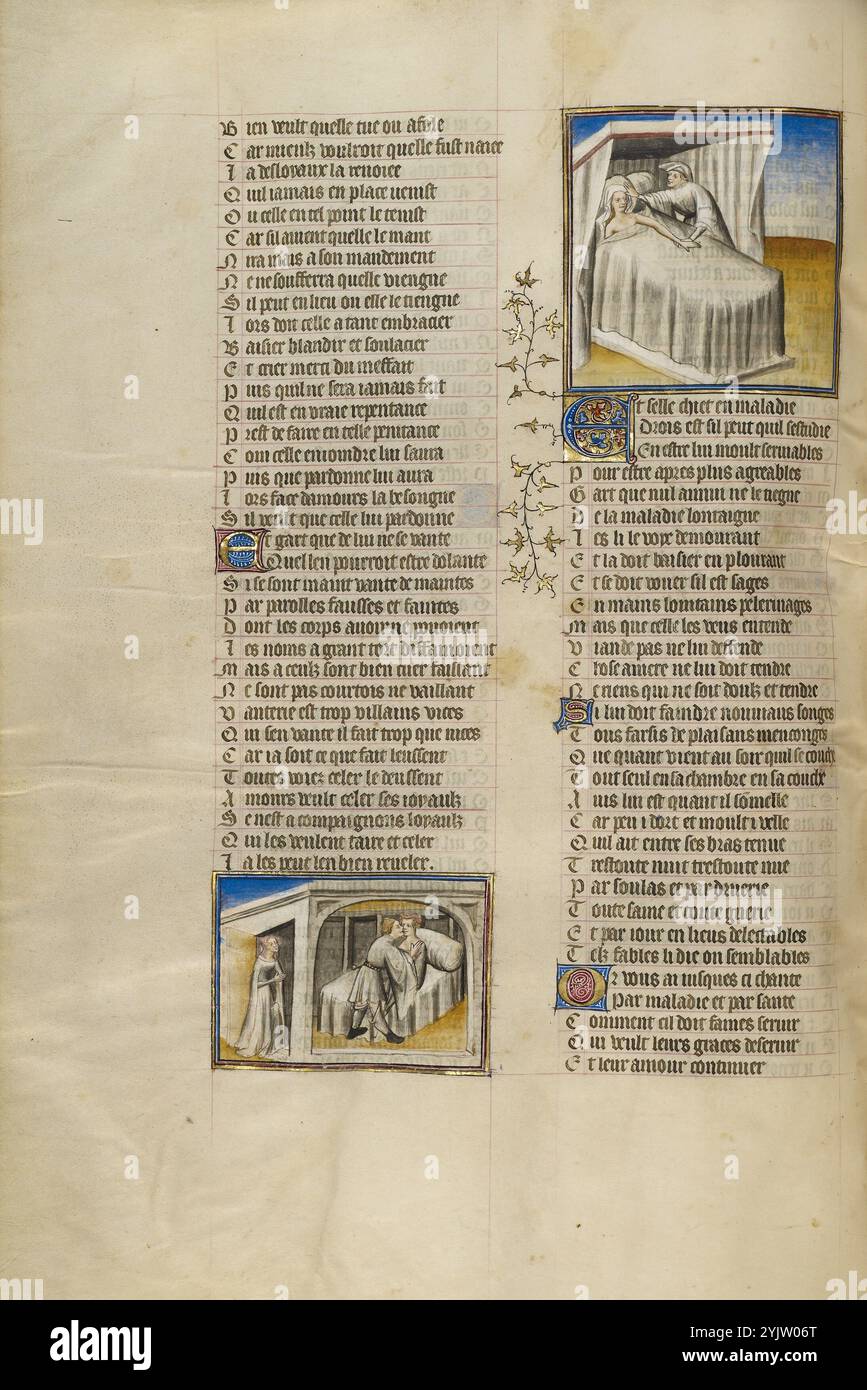 B ien veult quelle tue ou afole
C ar mieulz vouldroit quelle fust naiee
I a desloyaux la renoiee
Q uil iamais en place uenist
O u celle en tel point le tenist
C ar sil auient quelle le mant
N ira mais a son mandement
N e ne soufferra quelle viengne
S il peut en lieu ou elle le tiengne
L ors doit celle a tant embracier
B aisier blandir et soulacier
E t crier merci du meffait
P uis quil ne sera iamais fait
Q uil est en vraie repentance
P rest de faire en celle penitance
C om celle enioindre lui saura
P uis que pardonne lui aura
L ors face damours la besongne
S il veult que celle lui pardonne
Et gart que de lui ne se vante
Quel len pourroit estre dolante
S i se sont maint vante de maintes
P ar parolles fausses et faintes
D ont les corps auoir ne pouoient
L es noms a grant tort diffamoient
M ais a ceulz sont bien cuer faillant
N e sont pas courtois ne vaillant
V anterie est trop villains vices
Q ui sen vante il fait trop que nices
C ar ia soit ce que fait leussent
T outes voiez celer le deussent
A mours veult celer ses ioyaulz
S e nest a compaignons loyaulz
Q ui les veulent taire et celer
L a les peut len bien reueler.
Et selle chiet en maladie
Drois est sil peut quil sestudie
En estre lui moult seruiables
P our estre apres plus agreables
G art que nul annui ne le tiegne
D e la maladie lontaigne
L es li le voye demourant
E t la doit baisier en plourant
E t se doit vouer sil est sages
E n mains lointains pelerinages
M ais que celle les veus entende
V iande pas ne lui deffende
C hose amere ne lui doit tendre
N e riens qui ne soit doulz et tendre
Si lui doit faindre nouuiaus songes
T ous farsis de plaisans mencongez
Q ue quant vient au soir quil se couche
T out seul en sa chambre en sa couche
A uis lui est quant il someille
C ar peu i dort et moult i velle
Q uil ait entre ses bras tenue
T restoute nuit trestoute nue
P ar soulas et par druerie
T oute saine et toute guerie
E t par iour en lieus delectables
T elz fables li die ou semblables
Or vous ai iusques ci chante
Par maladie et par sante
C omment cil doit fames seruir
Q ui veult leurs graces deseruir
E t leur amour continuer
alamy
Image ID: 2YJW06T
www.alamy.com